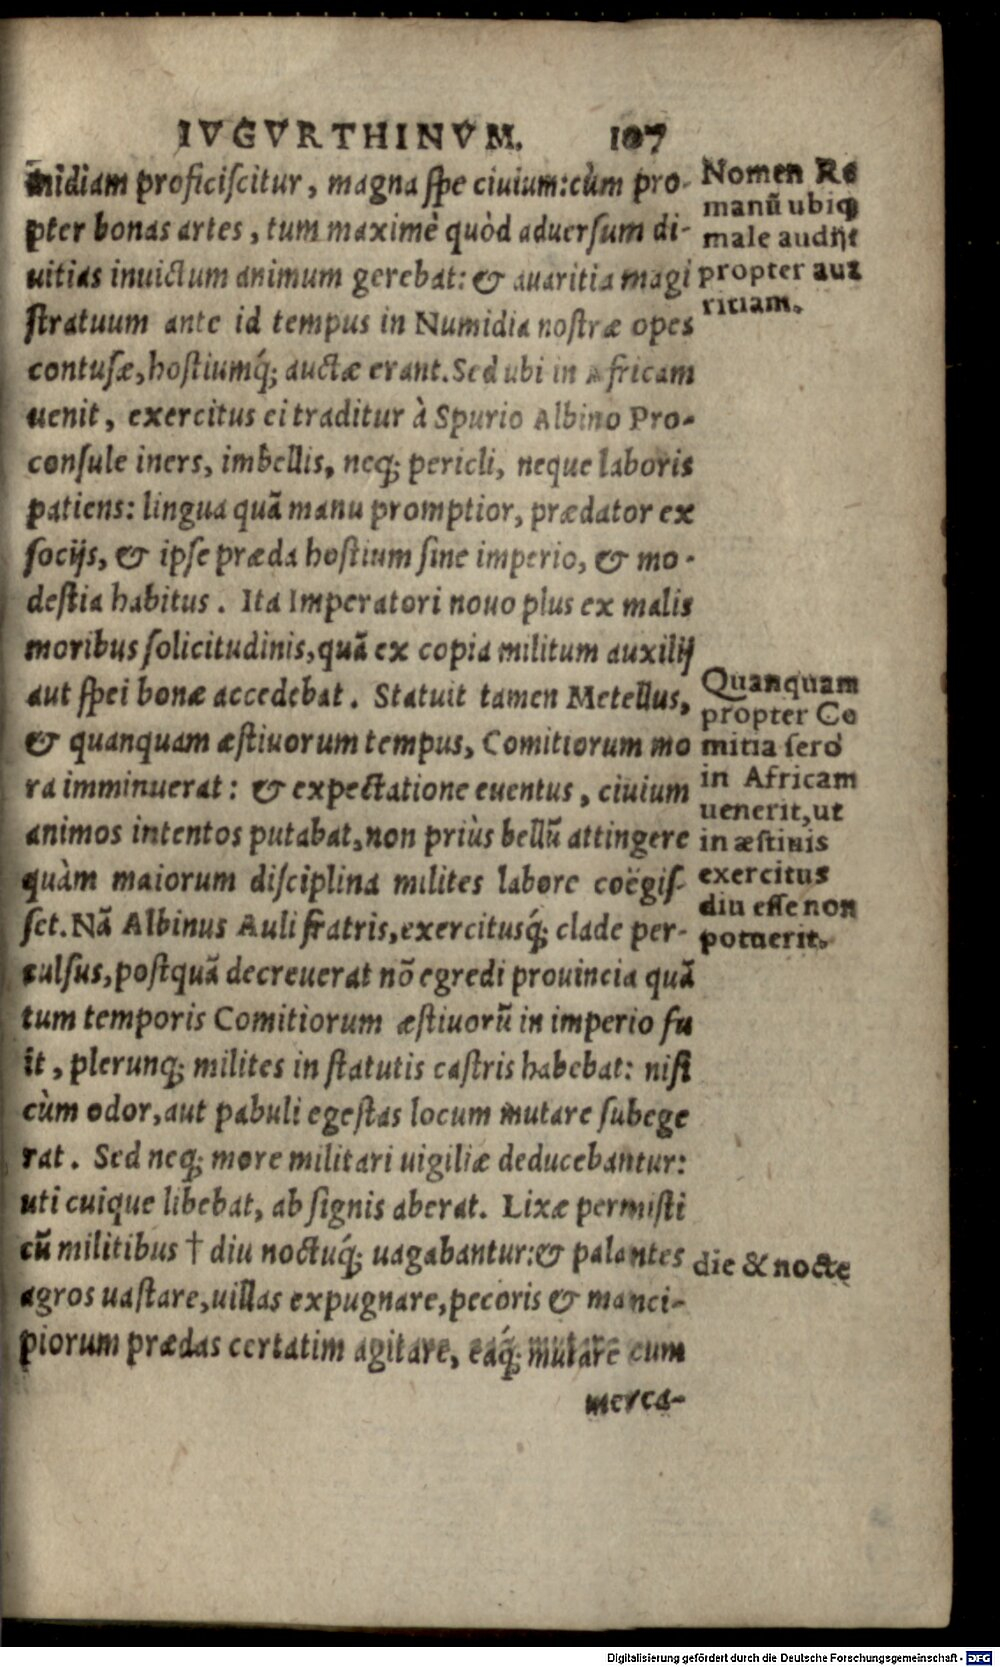 IVGVRTHINVM. 107
midiam proficiſcitur, magna ſpe ciuium: cùm pro-
pter bonas artes, tum maximè quòd aduerſum di-
uitias inuictum animum gerebat: & auaritia magi
ſtratuum ante id tempus in Numidia noſtræ opes
contuſæ, hoſtiumq́; auctæ erant. Sed ubi in Africam
uenit, exercitus ei traditur à Spurio Albino Pro-
conſule iners, imbellis, neq; pericli, neque laboris
patiens: lingua quã manu promptior, prædator ex
ſocijs, & ipſe præda hoſtium ſine imperio, & mo-
deſtia habitus. Ita Imperatori nouo plus ex malis
moribus ſolicitudinis, quã ex copia militum auxilij
aut ſpei bonæ accedebat. Statuit tamen Metellus,
& quanquam æſtiuorum tempus, Comitiorum mo
ra imminuerat: & expectatione euentus, ciuium
animos intentos putabat, non priùs bellũ attingere
quàm maiorum diſciplina milites labore coëgiſ-
ſet. Nã Albinus Auli fratris, exercitusq́; clade per-
culſus, poſtquã decreuerat nõ egredi prouincia quã
tum temporis Comitiorum æſtiuorũ in imperio fu
it, plerunq; milites in ſtatutis caſtris habebat: niſi
cùm odor, aut pabuli egeſtas locum mutare ſubege
rat. Sed neq; more militari uigiliæ deducebantur:
uti cuique libebat, ab ſignis aberat. Lixæ permiſti
cũ militibus † diu noctuq́; uagabantur: & palantes
agros uaſtare, uillas expugnare, pecoris & manci-
piorum prædas certatim agitare, eaq́; mutare cum
merca-
Nomen Ro
manũ ubiq;
male audijt
propter aua
ritiam.
Quanquam
propter Co
mitia ſerò
in Africam
uenerit, ut
in æſtiuis
exercitus
diu eſſe non
potuerit.
die & nocte
Digitalisierung gefördert durch die Deutsche Forschungsgemeinschaft - DFG